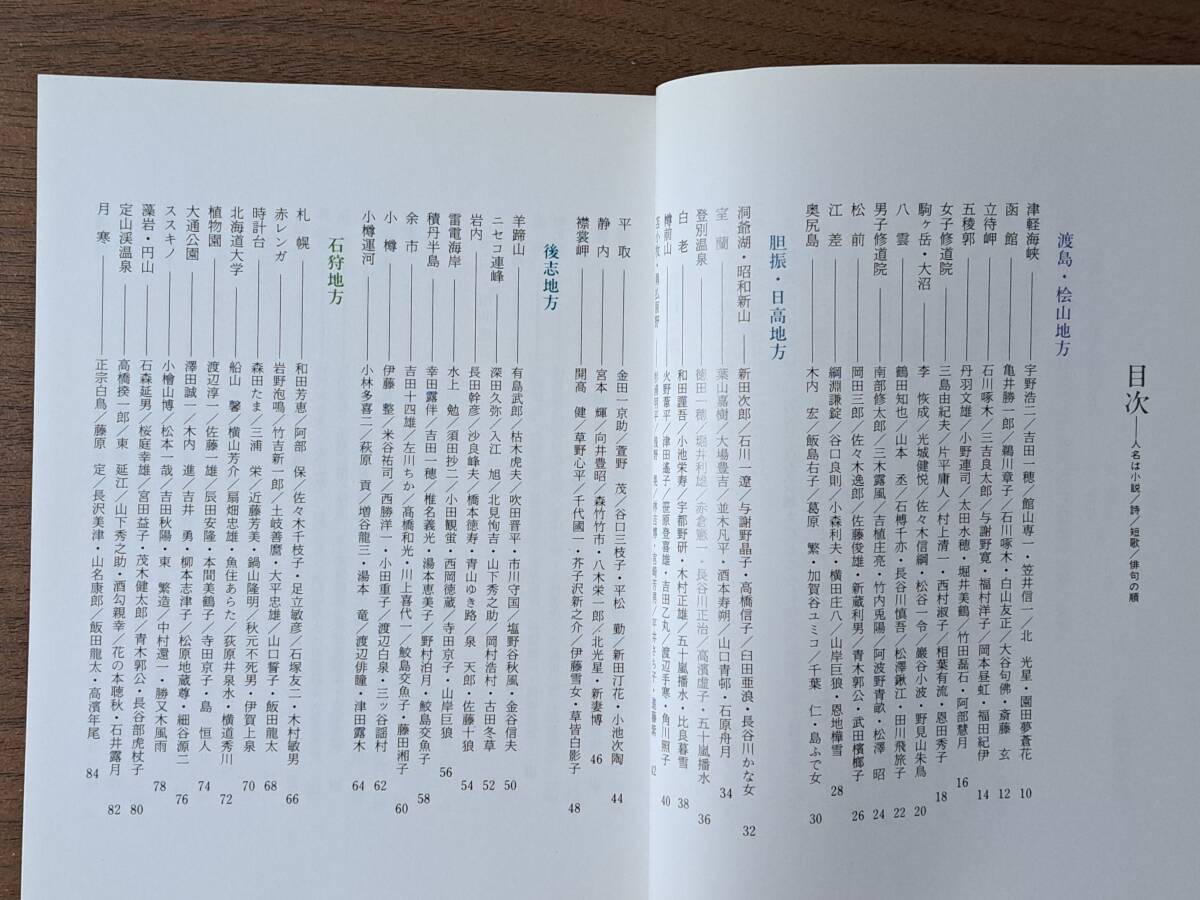 目次──人名は小説／詩／短歌／俳句の順
渡島・桧山地方
津軽海峡──宇野浩二／吉田一穂／館山専一・笠井信一／北　光星・園田夢蒼花 10
函　館──亀井勝一郎／鵜川章子／石川啄木・白山友正／大谷句佛・斎藤　玄 12
立待岬──石川啄木／三吉良太郎／与謝野寛・福村洋子／岡本昼虹・福田紀伊 14
五稜郭──丹羽文雄／小野連司／太田水穂・堀井美鶴／竹田磊石・阿部慧月 16
女子修道院──三島由紀夫／片平庸人／村上清一・西村淑子／相葉有流・恩田秀子 18
駒ヶ岳・大沼──李　恢成／光城健悦／佐々木信綱・松谷一令／巌谷小波・野見山朱鳥 20
八　雲──鶴田知也／山本　丞／石榑千亦・長谷川慎吾／松澤鍬江・田川飛旅子 22
男子修道院──南部修太郎／三木露風／吉植庄亮・竹内兎陽／阿波野青畝・松澤　昭 24
松　前──岡田三郎／佐々木逸郎／佐藤俊雄・新蔵利男／青木郭公・武田檳榔子 26
江　差──綱淵謙錠／谷口良則／小森利夫・横田庄八／山岸巨狼・恩地樺雪 28
奥尻島──木内　宏／飯島右子／葛原　繁・加賀谷ユミコ／千葉　仁・島ふで女 30
胆振・日高地方
洞爺湖・昭和新山──新田次郎／石川一遼／与謝野晶子・高橋信子／臼田亜浪・長谷川かな女 32
室　蘭──葉山嘉樹／大場豊吉／並木凡平・酒本寿朔／山口青邨・石原舟月 34
登別温泉──徳田一穂／堀井利雄／赤倉憲一・長谷川正治／高濱虚子・五十嵐播水 36
白　老──和田謹吾／小池栄寿／宇都野研・木村正雄／五十嵐播水・比良暮雪 38
樽前山──火野葦平／津田遙子／笹原登喜雄・吉田乙丸／渡辺手寒・角川照子 40
42
平　取──金田一京助／萱野　茂／谷口三枝子・平松　勤／新田汀花・小池次陶 44
静　内──宮本　輝／向井豊昭／森竹竹市・八木栄一郎／北光星・新妻博 46
襟裳岬──開高　健／草野心平／千代國一・芥子沢新之介／伊藤雪女・草皆白影子 48
後志地方
羊蹄山──有島武郎／枯木虎夫／吹田晋平・市川守国／塩野谷秋風・金谷信夫 50
ニセコ連峰──深田久弥／入江　旭／北見恂吉・山下秀之助／岡村浩村・古田冬草 52
岩内──長田幹彦／沙良峰夫／橋本徳寿・青山ゆき路／泉　天郎・佐藤十狼 54
雷電海岸──水上　勉／須田抄二／小田観蛍・西岡徳蔵／寺田京子・山岸巨狼 56
積丹半島──幸田露伴／吉田一穂／椎名義光・湯本恵美子／野村泊月・鮫島交魚子 58
余　市──吉田十四雄／左川ちか／高橋和光・川上喜代一／鮫島交魚子・藤田湘子 60
小　樽──伊藤　整／米谷祐司／西勝洋一・小田重子／渡辺白泉・三ッ谷謡村 62
小樽運河──小林多喜二／萩原　貢／増谷龍三・湯本　竜／渡辺俳瞳・津田露木 64
石狩地方
札　幌──和田芳恵／阿部　保／佐々木千枝子・足立敏彦／石塚友二・木村敏男 66
赤レンガ──岩野泡鳴／竹吉新一郎／土岐善麿・大平忠雄／山口誓子・飯田龍太 68
時計台──森田たま／三浦　栄／近藤芳美・鍋山隆明／秋元不死男・伊賀上泉 70
北海道大学──船山　馨／横山芳介／扇畑忠雄・魚住あらた／荻原井泉水・横道秀川 72
植物園──渡辺淳一／佐藤一雄／辰田安隆・本間美鶴子／寺田京子・島　恒人 74
大通公園──澤田誠一／木内　進／吉井　勇・柳本志津子／松原地蔵尊・細谷源二 76
ススキノ──小檜山博／松本一哉／吉田秋陽・東　繁造／中村還一・勝又木風雨 78
藻岩・円山──石森延男／桜庭幸雄／宮田益子・茂木健太郎／青木郭公・長谷部虎杖子 80
定山渓温泉──高橋揆一郎／東　延江／山下秀之助・酒勾親幸／花の本聴秋・石井露月 82
月　寒──正宗白鳥／藤原　定／長沢美津・山名康郎／飯田龍太・高濱年尾 84